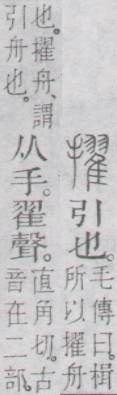 擢引也。
毛傳曰。楫
所以擢舟
也。擢舟、謂
引舟也。
从手。翟聲。
直角切。古
音在二部。